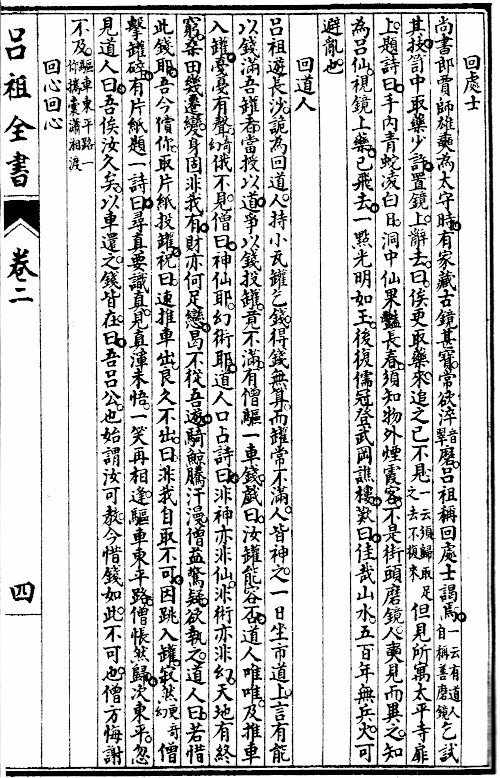 回處士
尚書郎賈師雄奭為太守時有家藏古鏡甚寶常欲淬磨呂祖稱回處士謁焉一云有道人自稱善磨鏡乞試
其技笥中取藥少許置鏡上辭去曰俟更取藥來追之已不見一云須歸取之去不復來但見所寓太平寺扉
上題詩曰手內青蛇凌白日洞中仙果豔長春須知物外煙霞客不是街頭磨鏡人奭見而異之知
為呂仙視鏡上藥已飛去一點光明如玉後復儒冠登武岡譙樓歎曰佳哉山水五百年無兵火可
避亂也
回道人
呂祖遊長沙詭為回道人持小瓦罐乞錢得錢無算而罐常不滿人皆神之一日坐市道上言有能
以錢滿吾罐者當授以道爭以錢投罐竟不滿有僧驅一車錢戲曰汝罐能容否道人唯唯及推車
入罐戛戛有聲俄不見僧曰神仙耶幻術耶道人口占詩曰非神亦非仙非術亦非幻天地有終
窮桑田幾遷變身固非我有財亦何足戀曷不從吾遊騎鯨騰汗漫僧益驚疑欲執之道人曰若惜
此錢耶吾今償你取片紙投罐祝曰速推車出良久不出曰非我自取不可因跳入罐寂然僧
擊罐碎有片紙題一詩曰尋真要識真見真渾未悟一笑再相逢驅車東平路僧悵然歸次東平忽
見道人曰吾俟汝久矣以車還之錢皆在曰吾呂公也始謂汝可教今惜錢如此不可也僧方悔謝
不及驅車東平路一
回心回心
呂祖全書
卷二
四